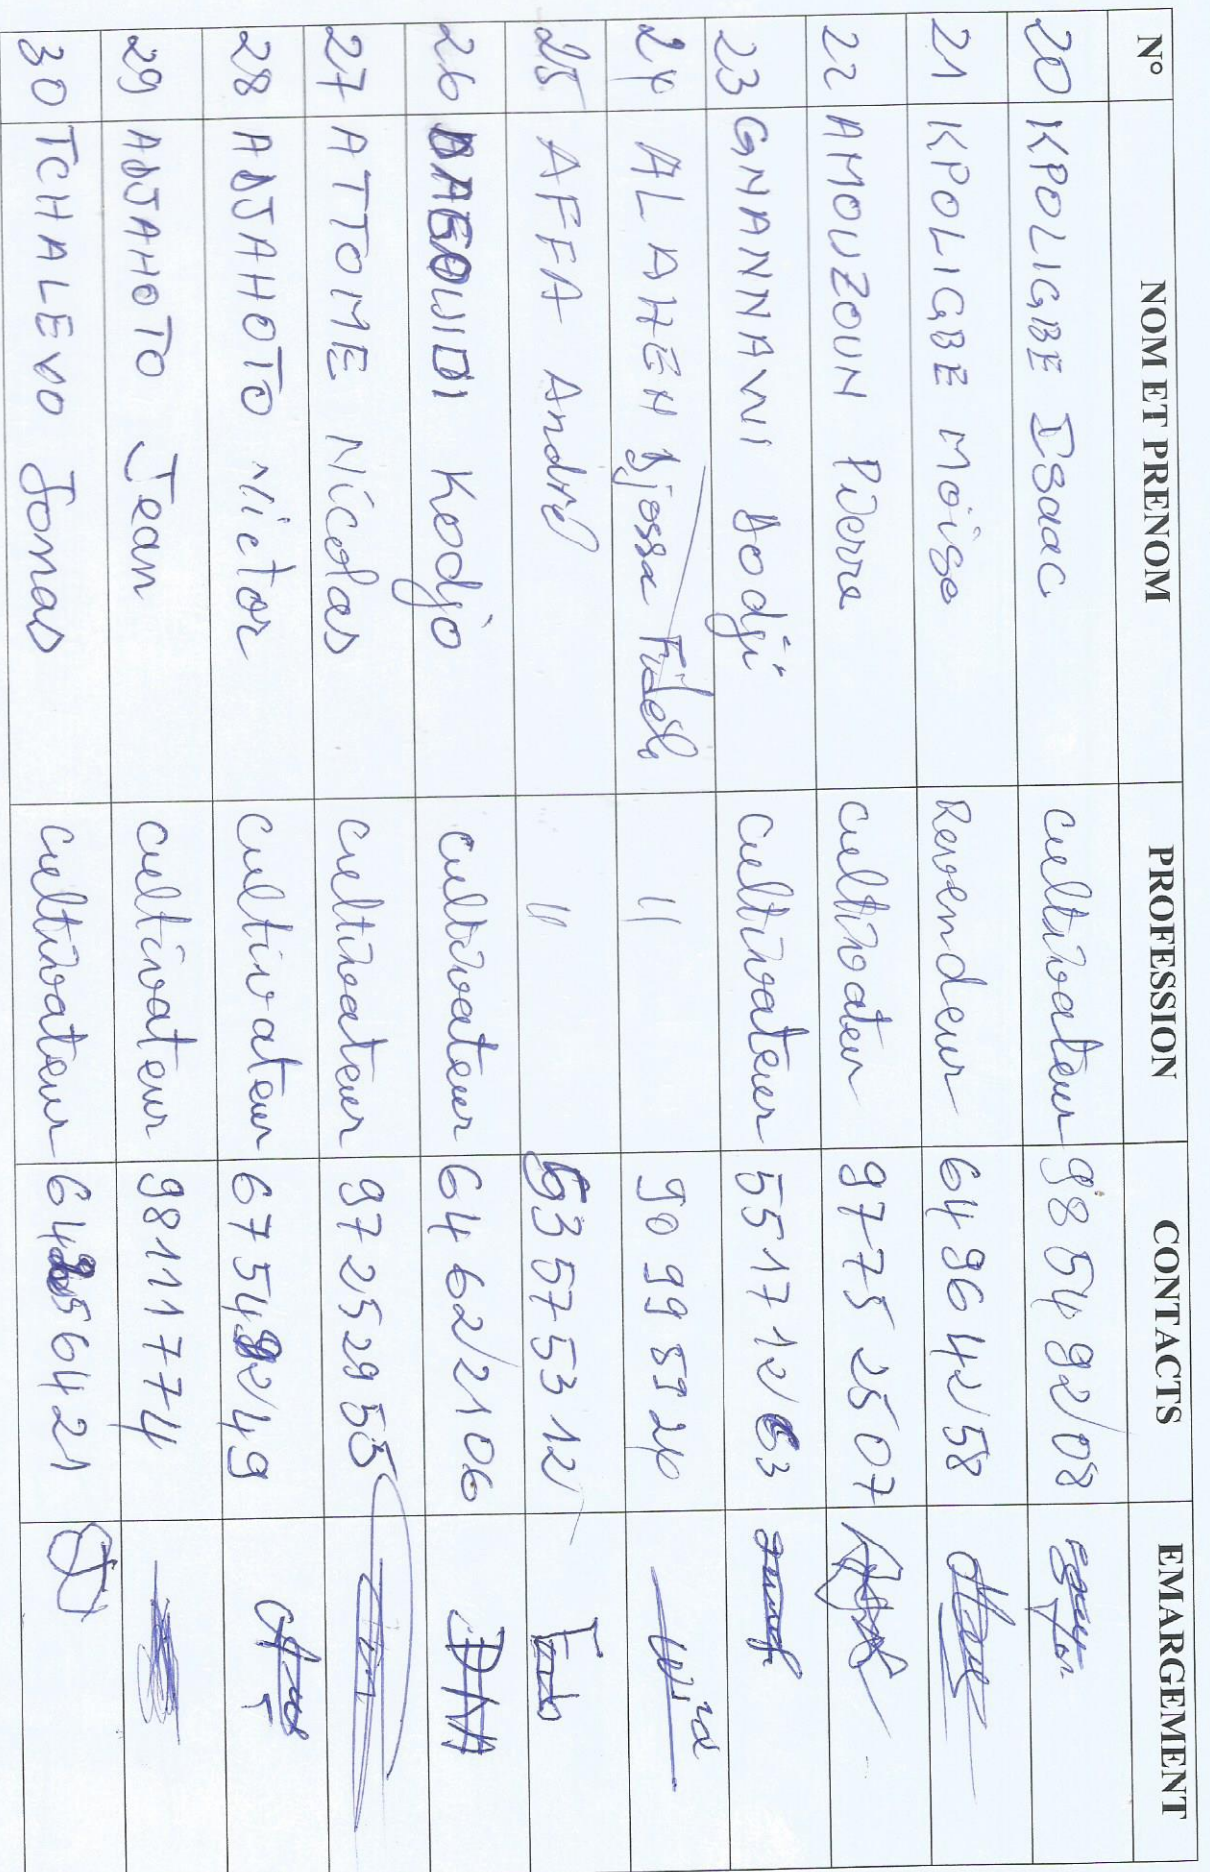 N° NOM ET PRENOM PROFESSION CONTACTS EMARGEMENT
20 KPOLIGBE Isaac cultivateur 98 54 92 08
21 KPOLIGBE Moïse Revendeur 64 96 42 58
22 AMOUZOUN Pierre cultivateur 97 75 25 07
23 GNANNAVI Dodji cultivateur 55 17 12 63
24 ALAHEN Djossa Fidèle " 90 99 59 24
25 AFFA André " 53 57 53 12
26 Kodjo cultivateur 64 62 21 06
27 ATTOME Nicolas cultivateur 97 25 29 55
28 ADJAHOTO Victor cultivateur 67 54 92 49
29 ADJAHOTO Jean cultivateur 98 11 17 74
30 TCHALEVO Jonas cultivateur